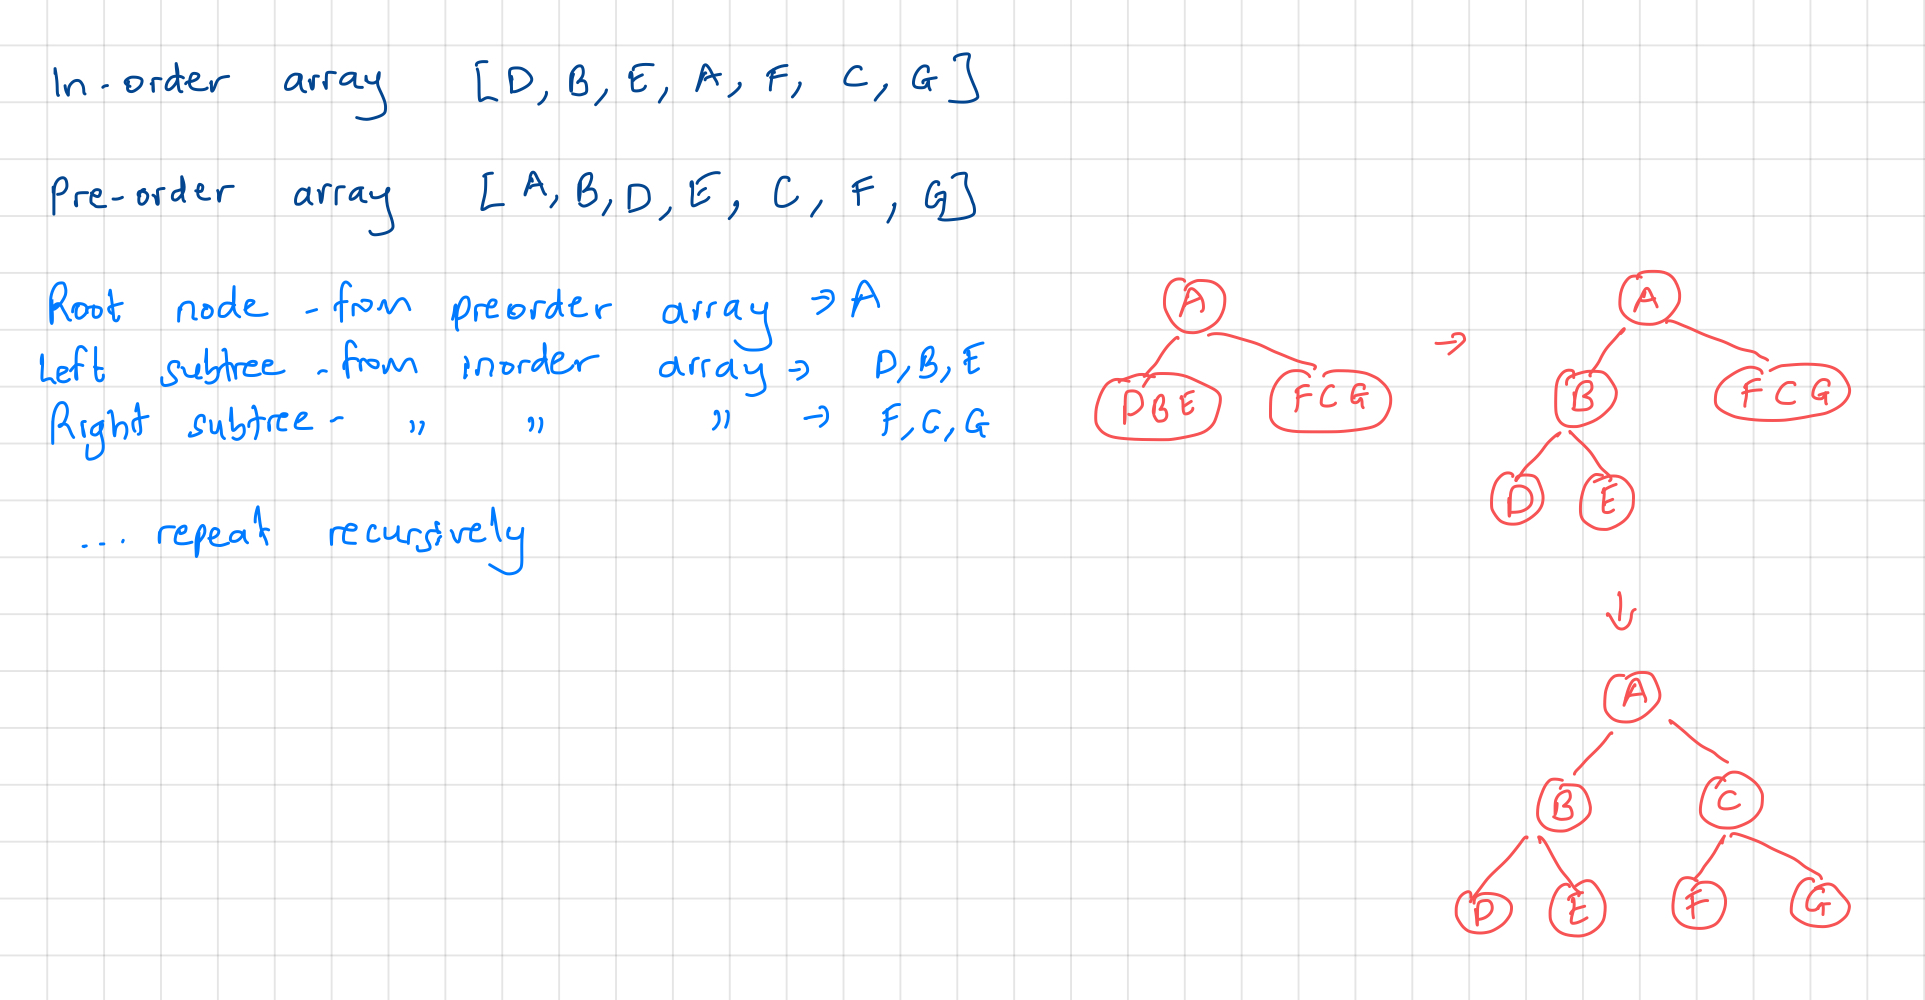 In-order array [D, B, E, A, F, C, G]
Pre-order array [A, B, D, E, C, F, G]
Root node - from preorder array → A
Left subtree - from inorder array → D, B, E
Right subtree - " " " → F, C, G
... repeat recursively
A
D B E F C G
→
A
B F C G
D E
↓
A
B C
D E F G